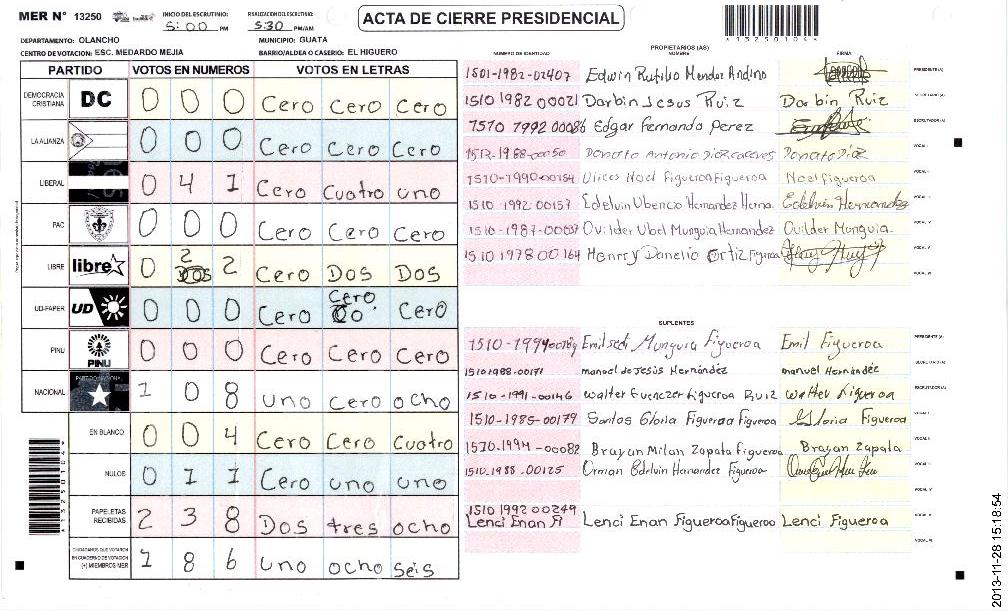 MER N° 13250
INICIO DEL ESCRUTINIO:
5:00 PM
FINALIZACION DEL ESCRUTINIO:
5:30 PM/AM
ACTA DE CIERRE PRESIDENCIAL
*13250104*
DEPARTAMENTO: OLANCHO
MUNICIPIO: GUATA
CENTRO DE VOTACION: ESC. MEDARDO MEJIA
BARRIO/ALDEA O CASERIO: EL HIGUERO
PARTIDO VOTOS EN NUMEROS VOTOS EN LETRAS
DEMOCRACIA CRISTIANA DC 0 0 0 Cero Cero Cero
LA ALIANZA 0 0 0 Cero Cero Cero
LIBERAL 0 4 1 Cero Cuatro uno
PAC 0 0 0 Cero Cero Cero
LIBRE libre 0 2 2 Cero Dos Dos
UD-FAPER UD 0 0 0 Cero Cero Cero
PINU PINU 0 0 0 Cero Cero Cero
NACIONAL 1 0 8 uno cero ocho
EN BLANCO 0 0 4 Cero Cero Cuatro
NULOS 0 1 1 Cero uno uno
PAPELETAS RECIBIDAS 2 3 8 Dos tres ocho
CIUDADANOS QUE VOTARON EN CUADERNO DE VOTACION (+) MIEMBROS MER 1 8 6 uno ocho seis
PROPIETARIOS (AS)
NUMERO DE IDENTIDAD NOMBRE FIRMA
1501-1982-02407 Edwin Rufilio Mendez Andino PRESIDENTE(A)
1510 1982 00021 Darbin Jesus Ruiz Darbin Ruiz SECRETARIO(A)
Edgar Fernando Perez ESCRUTADOR(A)
1512-1988-00050 Donato Antonio Diaz Donato Diaz VOCAL I
Figueroa Figueroa Noel figueroa VOCAL II
1510 1992 00157 Edelvin Hernandez Edelvin Hernandez
Ovilder Ubel Munguia Hernandez Ovilder Munguia.
1510 1978 00164 Henrry Danelio Ortiz Figueroa VOCAL V
VOCAL VI
SUPLENTES
Munguia Figueroa Emil Figueroa PRESIDENTE(A)
1510 1988-00171 manuel de Jesús Hernández manuel Hernández SECRETARIO(A)
1510-1991-00146 Walter Figueroa Ruiz Walter Figueroa ESCRUTADOR(A)
1510-1985-00179 Santos Gloria Figueroa Figueroa Gloria Figueroa VOCAL I
1510-1994-00082 Brayan Milan Zapata Figueroa Brayan Zapata VOCAL II
1510-1988-00125 Orman Edelvin Hernandez Figueroa
VOCAL IV
1510 1992 00249
Lenci Enan Lenci Enan Figueroa Figueroa Lenci Figueroa VOCAL V
VOCAL VI
*13250104*
2013-11-28 15:18:54